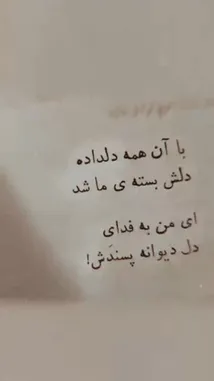 با آن همه دلداده
دلش بسته ی ما شد
ای من به فدای
دل دیوانه پسندَش!